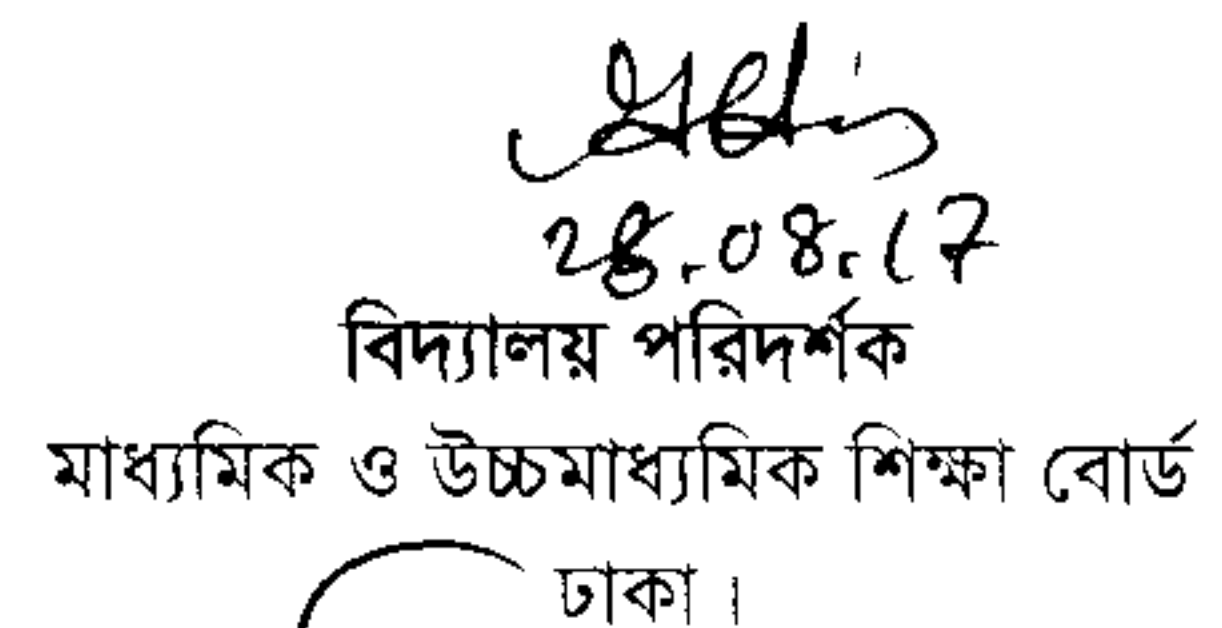 28.08.17
বিদ্যালয় পরিদর্শক
মাধ্যমিক ও উচ্চমাধ্যমিক শিক্ষা বোর্ড
ঢাকা।